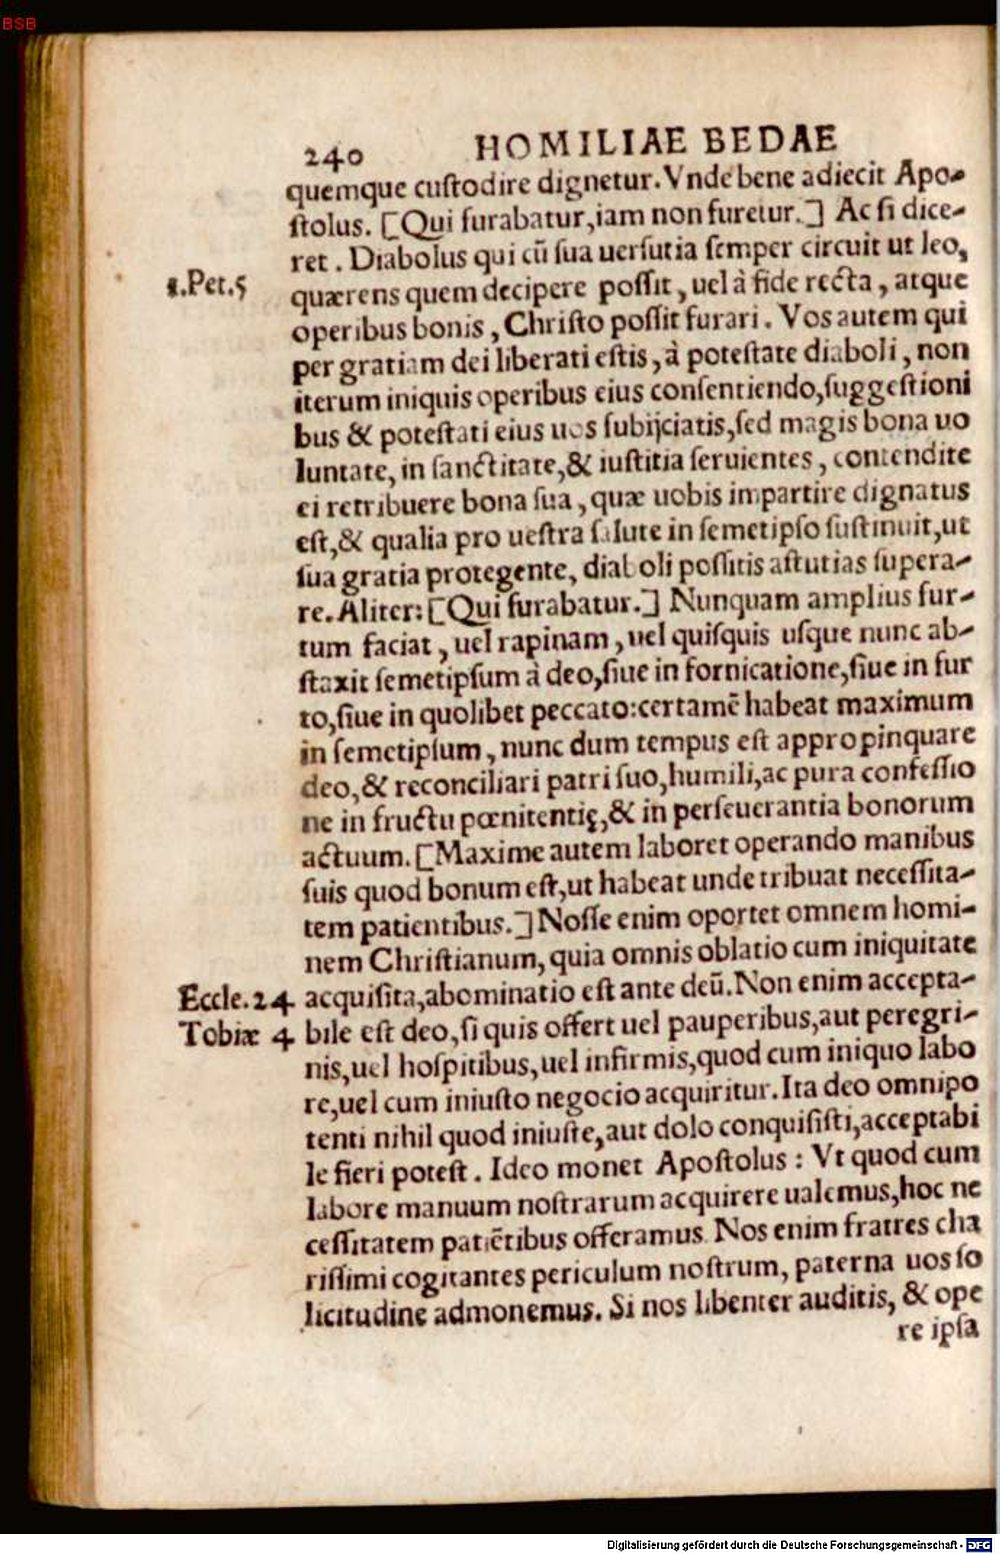 BSB
240 HOMILIAE BEDAE
quemque cuſtodire dignetur. Vnde bene adiecit Apo-
ſtolus. [Qui furabatur, iam non furetur.] Ac ſi dice-
ret. Diabolus qui cū ſua uerſutia ſemper circuit ut leo,
1.Pet.5 quærens quem decipere poſſit, uel à fide recta, atque
operibus bonis, Chriſto poſſit furari. Vos autem qui
per gratiam dei liberati eſtis, à poteſtate diaboli, non
iterum iniquis operibus eius conſentiendo, ſuggeſtioni
bus & poteſtati eius uos ſubijciatis, ſed magis bona uo
luntate, in ſanctitate, & iuſtitia ſeruientes, contendite
ei retribuere bona ſua, quæ uobis impartire dignatus
eſt, & qualia pro ueſtra ſalute in ſemetipſo ſuſtinuit, ut
ſua gratia protegente, diaboli poſſitis aſtutias ſupera-
re. Aliter: [Qui furabatur.] Nunquam amplius fur-
tum faciat, uel rapinam, uel quiſquis uſque nunc ab-
ſtaxit ſemetipſum à deo, ſiue in fornicatione, ſiue in fur
to, ſiue in quolibet peccato: certamē habeat maximum
in ſemetipſum, nunc dum tempus eſt appropinquare
deo, & reconciliari patri ſuo, humili, ac pura confeſſio
ne in fructu pœnitentię, & in perſeuerantia bonorum
actuum. [Maxime autem laboret operando manibus
ſuis quod bonum eſt, ut habeat unde tribuat neceſſita-
tem patientibus.] Noſſe enim oportet omnem homi-
nem Chriſtianum, quia omnis oblatio cum iniquitate
Eccle.24 acquiſita, abominatio eſt ante deū. Non enim accepta-
Tobiæ 4 bile eſt deo, ſi quis offert uel pauperibus, aut peregri-
nis, uel hoſpitibus, uel infirmis, quod cum iniquo labo
re, uel cum iniuſto negocio acquiritur. Ita deo omnipo
tenti nihil quod iniuſte, aut dolo conquiſiſti, acceptabi
le fieri poteſt. Ideo monet Apoſtolus: Vt quod cum
labore manuum noſtrarum acquirere ualemus, hoc ne
ceſſitatem patiētibus offeramus. Nos enim fratres cha
riſſimi cogitantes periculum noſtrum, paterna uos ſo
licitudine admonemus. Si nos libenter auditis, & ope
re ipſa
Digitalisierung gefördert durch die Deutsche Forschungsgemeinschaft - DFG